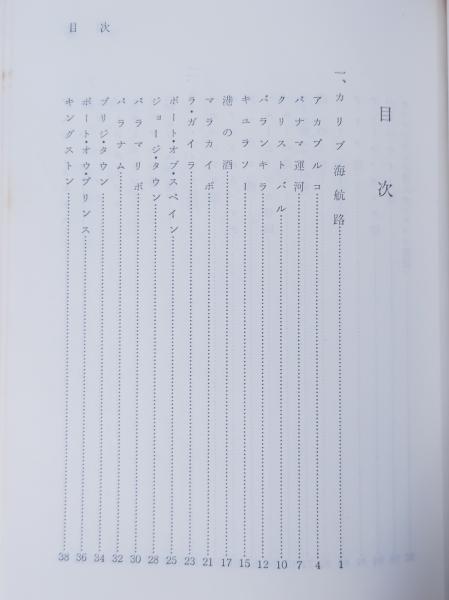 目次
目次
一、カリブ海航路……1
アカプルコ……4
パナマ運河……7
クリストバル……10
バランキラ……12
キュラソー……15
港の酒……17
マラカイボ……21
ラ・ガイラ……23
ポート・オブ・スペイン……25
ジョージ・タウン……28
パラマリボ……30
パラナム……32
ブリジ・タウン……34
ポート・オウ・プリンス……36
キングストン……38